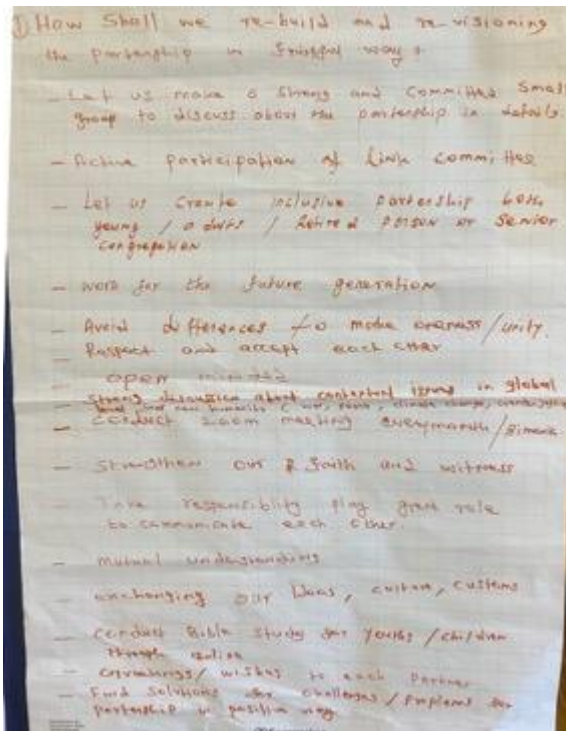 ① How Shall we re-build and re-visioning
the partenship in fruitful way?
- Let us make a strong and committed small
group to discuss about the partenship in details.
- Active participation of Link committee
- Let us create inclusive partenship both
young / adults / Retired person or Senior
congregation
- work for the future generation
- Avoid differences to make oneness/unity.
Respect and accept each other
open minded
- Strong discussion about contextual issues in global
climate change,
- Conduct zoom meeting everymonth/
- Strengthen our faith and witness
- Take responsiblity play great role
to communicate each other.
- mutual understanding
- exchanging our Ideas, culture, customs
- Conduct Bible study for Youths / children
through online
- / wishes to each Partner
- Find solutions for challenges / problems for
partenship in positive way.